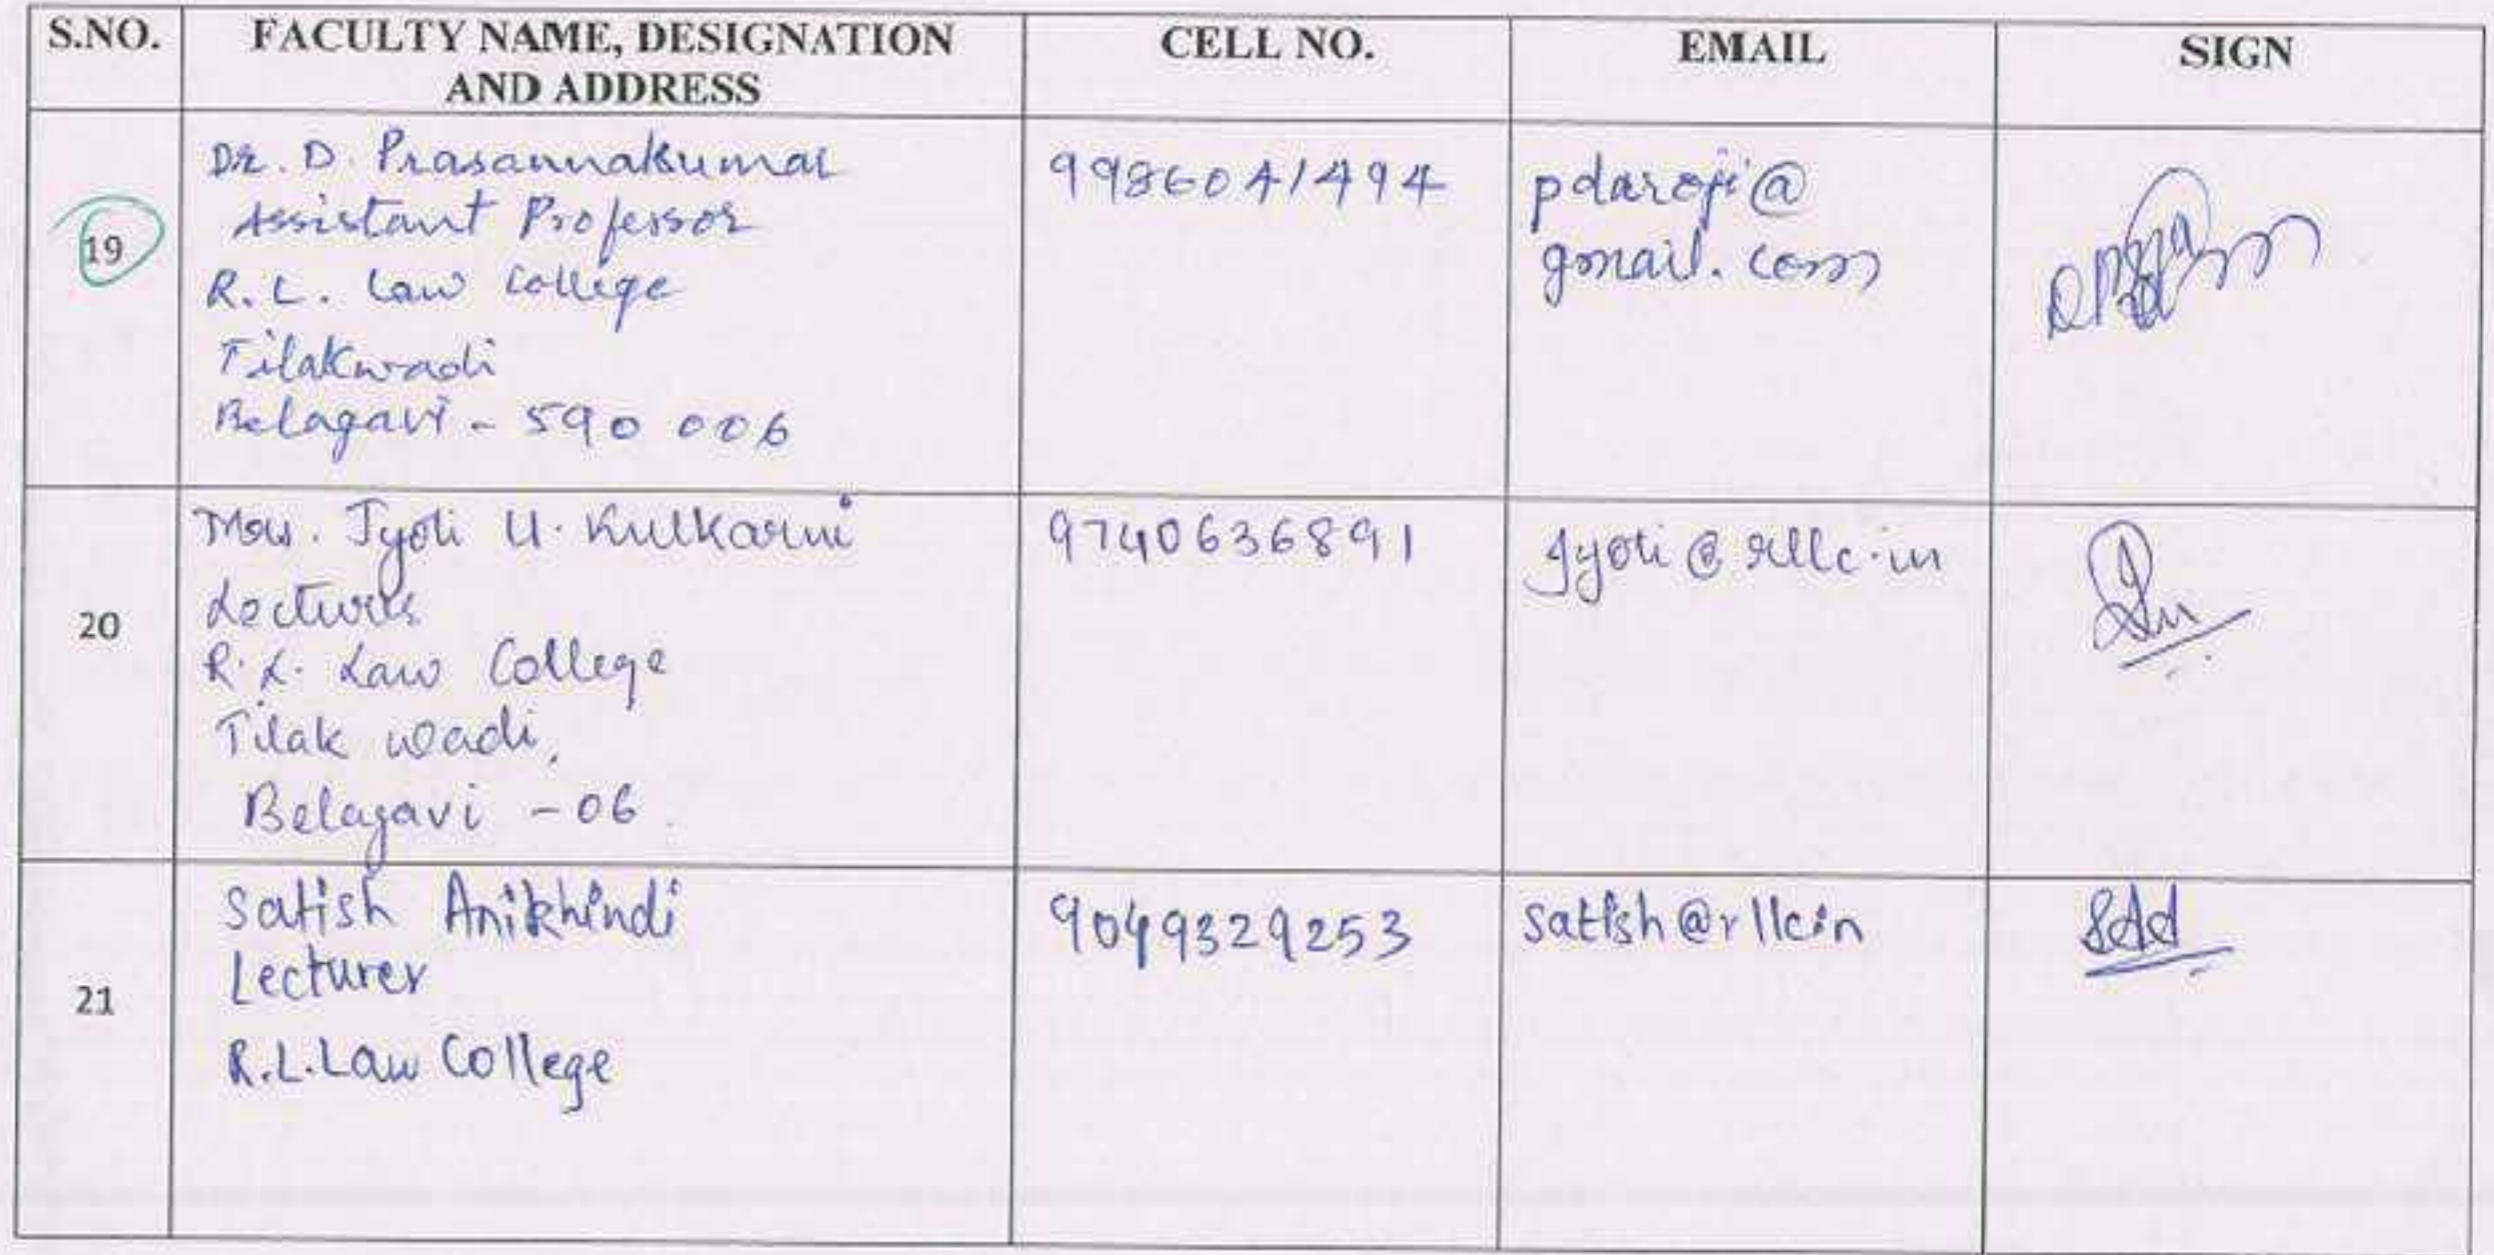 S.NO. FACULTY NAME, DESIGNATION AND ADDRESS CELL NO. EMAIL SIGN
19
Dr. D. Prasannakumar
Assistant Professor
R.L. Law College
Tilakwadi
Belagavi - 590 006
9986041494
pdaroji@
gmail.com
20
Mrs. Jyoti U. Kulkarni
Lecturer
R.L. Law College
Tilak wadi,
Belagavi - 06.
9740636891
Jyoti@rllc.in
21
Satish Anikhindi
Lecturer
R.L. Law College
9049329253
satish@rllc.in